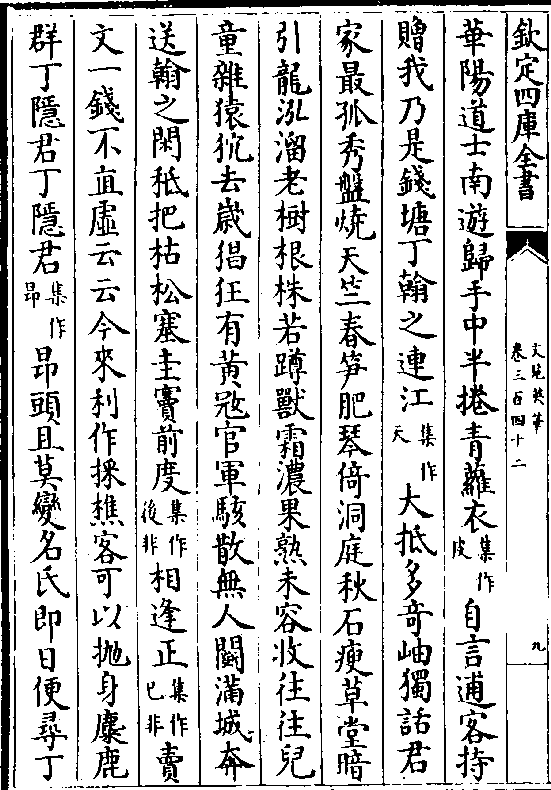 欽定四庫全書
文苑英華
卷三百四十二
九
華陽道士南遊歸手中半捲青蘿衣集作皮自言逋客持
贈我乃是錢塘丁翰之連江集作天大抵多竒岫獨話君
家最孤秀盤燒天竺春笋肥琴倚洞庭秋石瘦草堂暗
引龍泓溜老樹根株若蹲獸霜濃果熟未容收往往兒
童雜猿狖去歲猖狂有黃冦官軍駭散無人鬬滿城奔
送翰之閑秪把枯松塞圭竇前度集作後非相逢正集作已非賣
文一錢不直虛云云今來利作採樵客可以抛身麋鹿
群丁隱君丁隱君集作昂昂頭且莫變名氏即日便尋丁